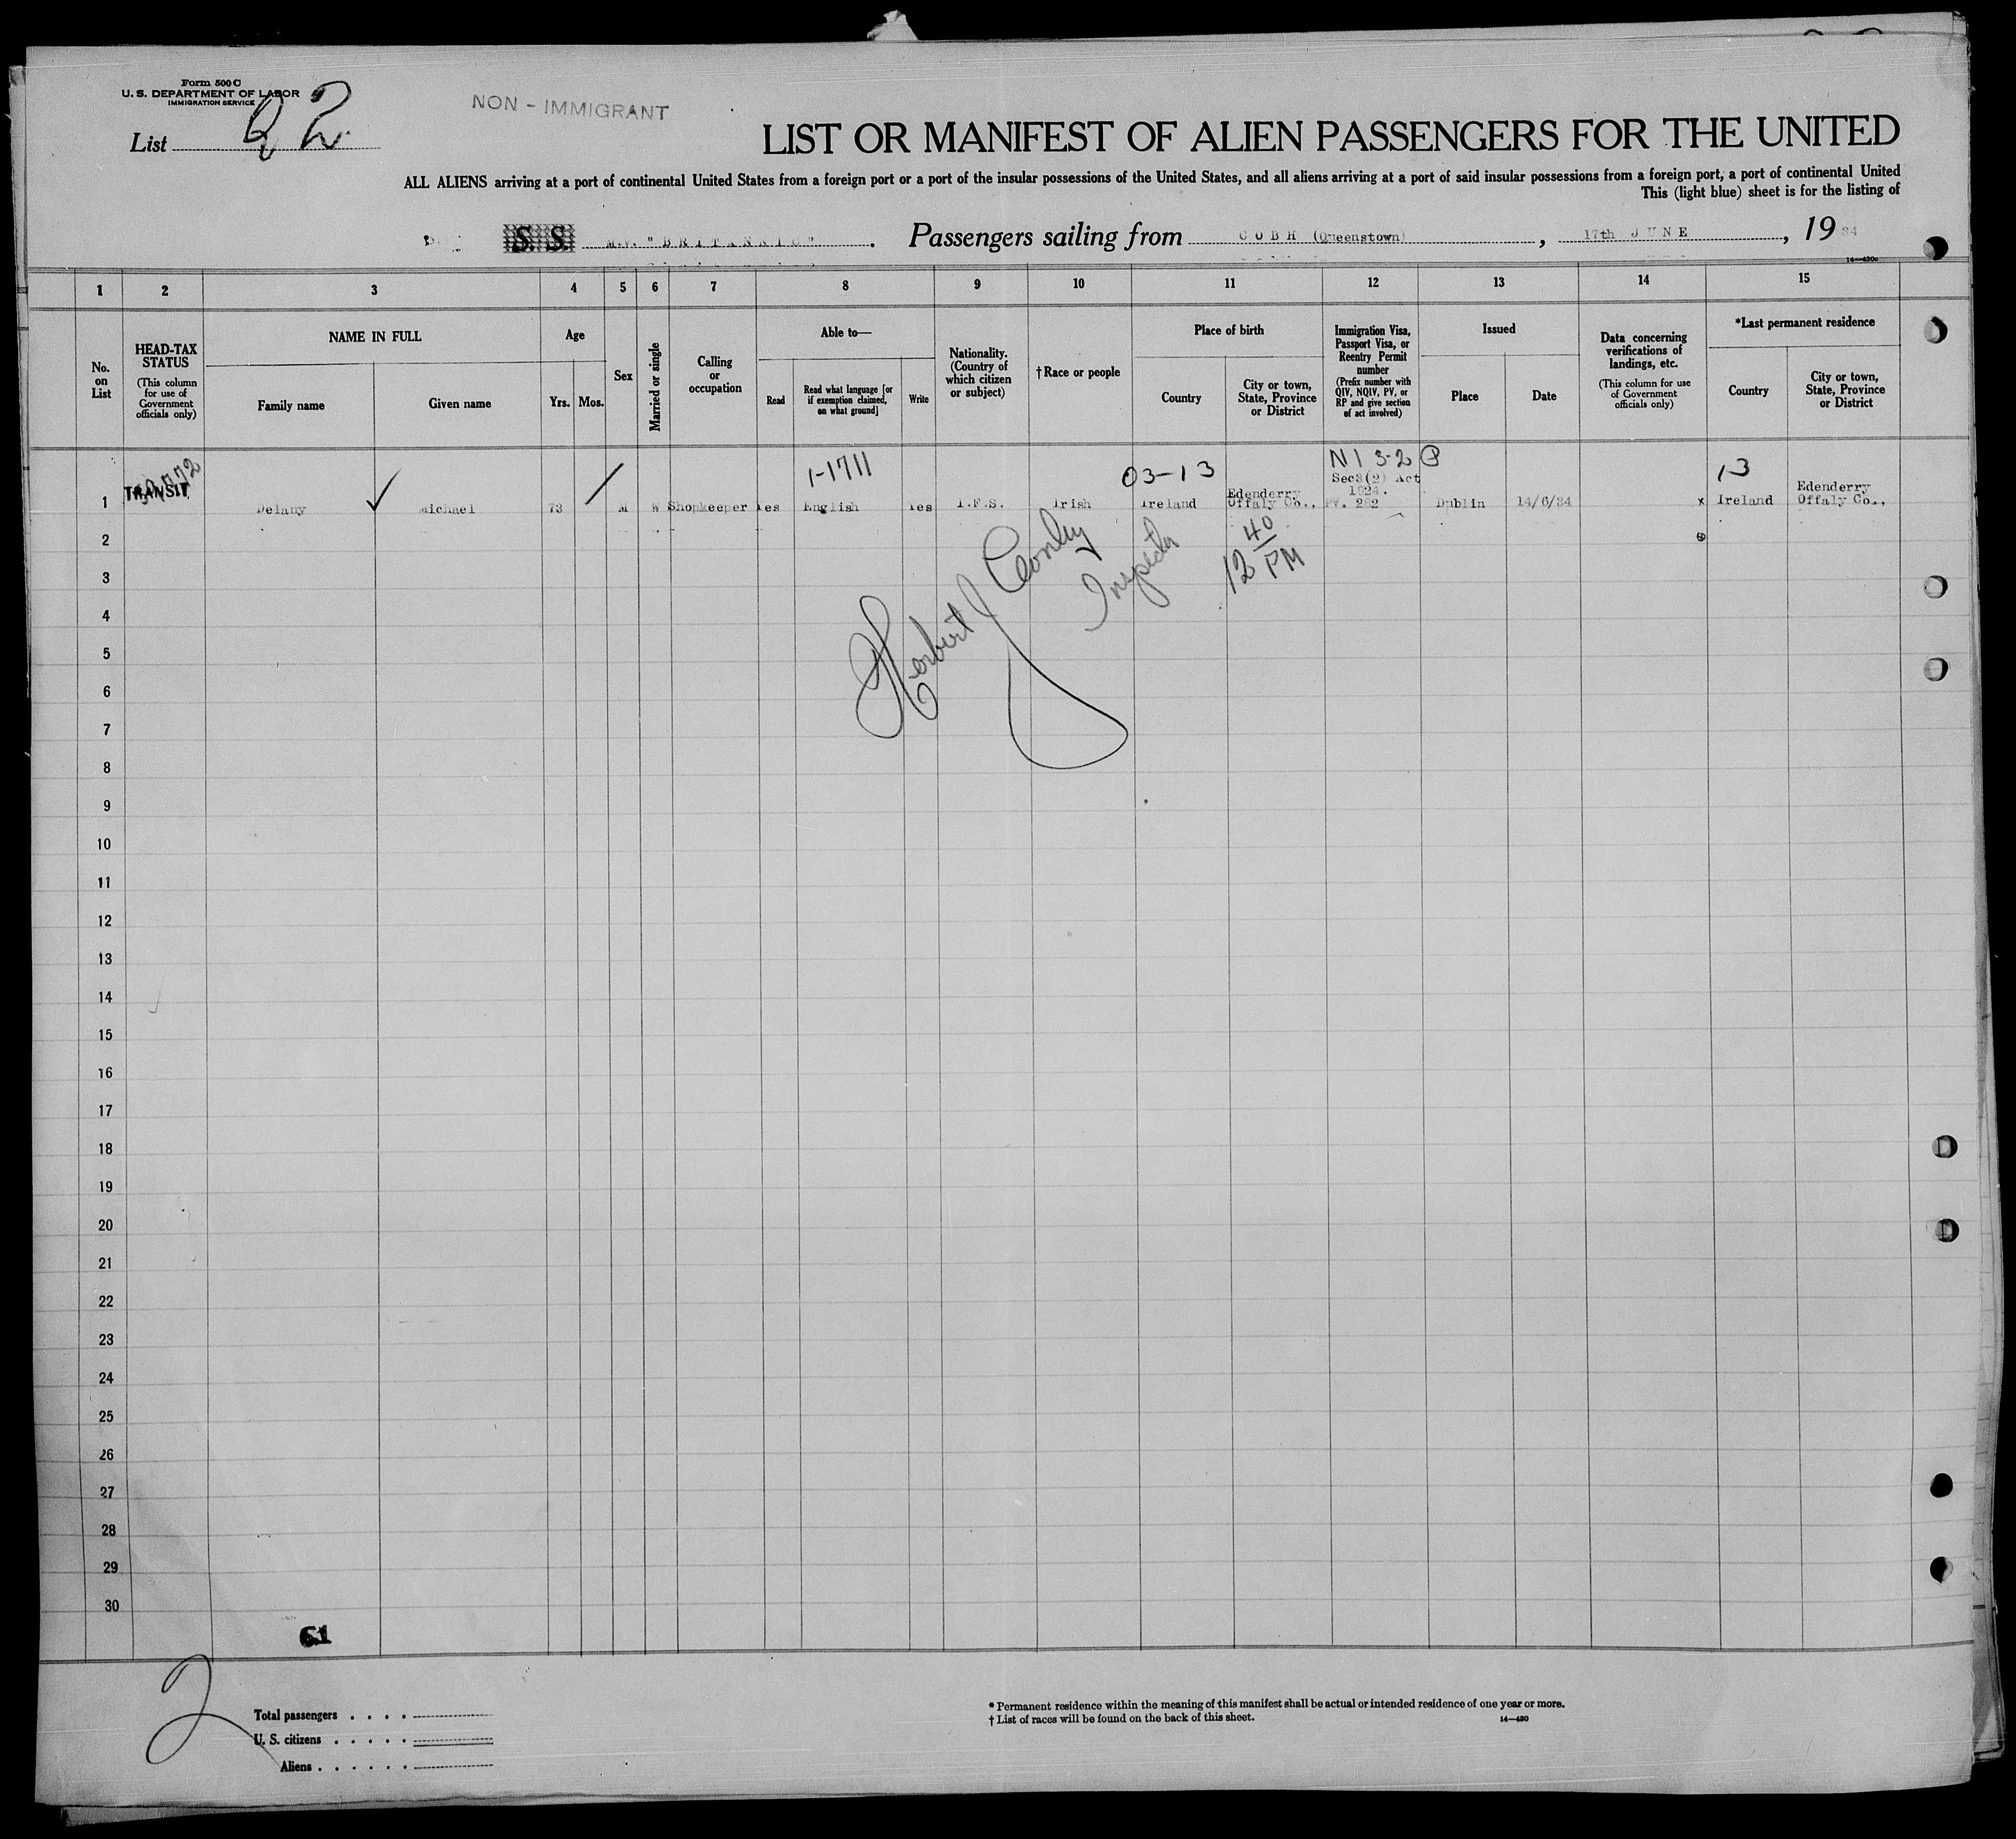 Form 500 C
U. S. DEPARTMENT OF LABOR
IMMIGRATION SERVICE
List 22
NON - IMMIGRANT
LIST OR MANIFEST OF ALIEN PASSENGERS FOR THE UNITED
ALL ALIENS arriving at a port of continental United States from a foreign port or a port of the insular possessions of the United States, and all aliens arriving at a port of said insular possessions from a foreign port, a port of continental United
This (light blue) sheet is for the listing of
S. S. M.V. "BRITANNIC". Passengers sailing from COBH (Queenstown), 17th JUNE, 1934
14—430c
1 2 3 4 5 6 7 8 9 10 11 12 13 14 15
No. on List
HEAD-TAX STATUS
(This column for use of Government officials only)
NAME IN FULL
Family name
Given name
Age
Yrs.
Mos.
Sex
Married or single
Calling or occupation
Able to—
Read
Read what language [or if exemption claimed, on what ground]
Write
Nationality. (Country of which citizen or subject)
†Race or people
Place of birth
Country
City or town, State, Province or District
Immigration Visa, Passport Visa, or Reentry Permit number
(Prefix number with QIV, NQIV, PV, or RP and give section of act involved)
Issued
Place
Date
Data concerning verifications of landings, etc.
(This column for use of Government officials only)
*Last permanent residence
Country
City or town, State, Province or District
1-1711 03-13 N I 3-2 P 13
Sec3(2) Act
1924.
1 TRANSIT Delany Michael 73 M W Shopkeeper Yes English Yes I.F.S. Irish Ireland Edenderry Offaly Co., PV. 282 Dublin 14/6/34 x Ireland Edenderry Offaly Co.,
Herbert J Conley
Inspector
12 40 PM
2
3
4
5
6
7
8
9
10
11
12
13
14
15
16
17
18
19
20
21
22
23
24
25
26
27
28
29
30
61
2
Total passengers . . . .
U. S. citizens . . . . .
Aliens . . . . . .
* Permanent residence within the meaning of this manifest shall be actual or intended residence of one year or more.
† List of races will be found on the back of this sheet.
14—430